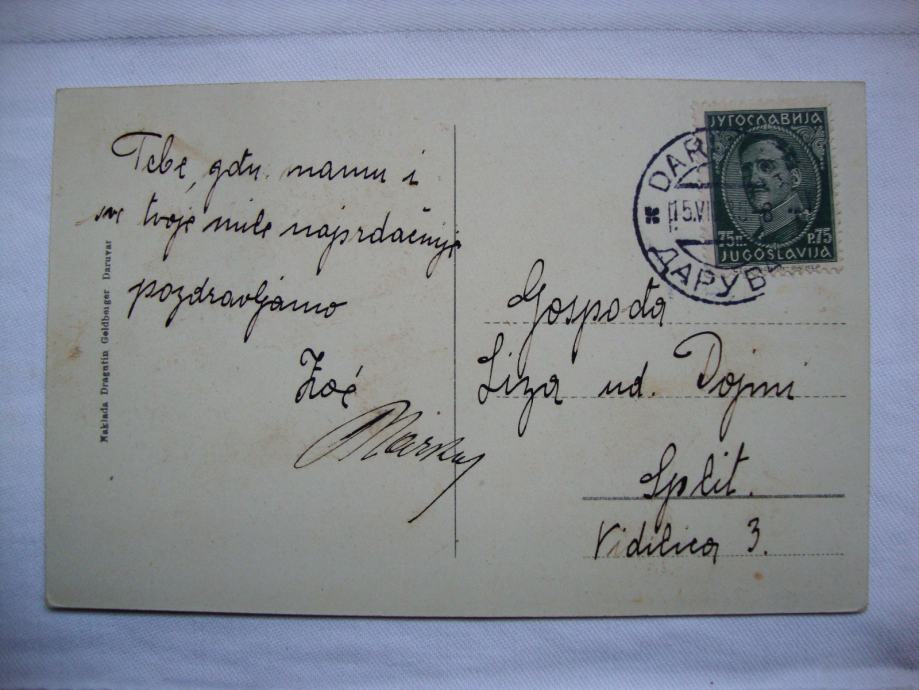 Tebe, gđu. mamu i
sve tvoje mile najsrdačnije
pozdravljamo
Zoé
Naklada Dragutin Goldberger Daruvar
ЈУГОСЛАВИЈА
75 P.75
JUGOSLAVIJA
DAR
15.VI 8
ДАРУВ
Gospođa
Liza ud. Dojmi
Split.
Vidilica 3.